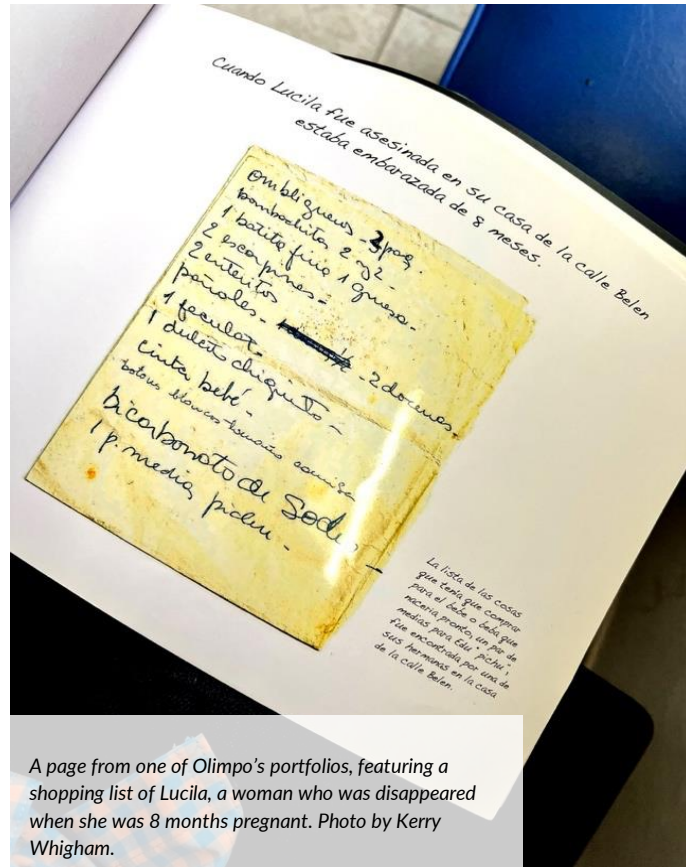 Cuando Lucila fue asesinada en su casa de la calle Belen
estaba embarazada de 8 meses.
ombligueros - 3 paq.
bombachita 2 y 2 -
1 batita fina 1 gruesa -
2 escarpines -
2 enteritos
pañales - 2 docenas -
1 fecular
1 dulcito chiquito -
cinta bebé -
botones blancos tamaño camisa
bicarbonato de Sodio -
1 p. media
La lista de las cosas
que tenía que comprar
para el bebe o beba que
nacería pronto, un par de
medias para Edu "pichu",
fue encontrada por una de
sus hermanas en la casa
de la calle Belen.
A page from one of Olimpo's portfolios, featuring a
shopping list of Lucila, a woman who was disappeared
when she was 8 months pregnant. Photo by Kerry
Whigham.